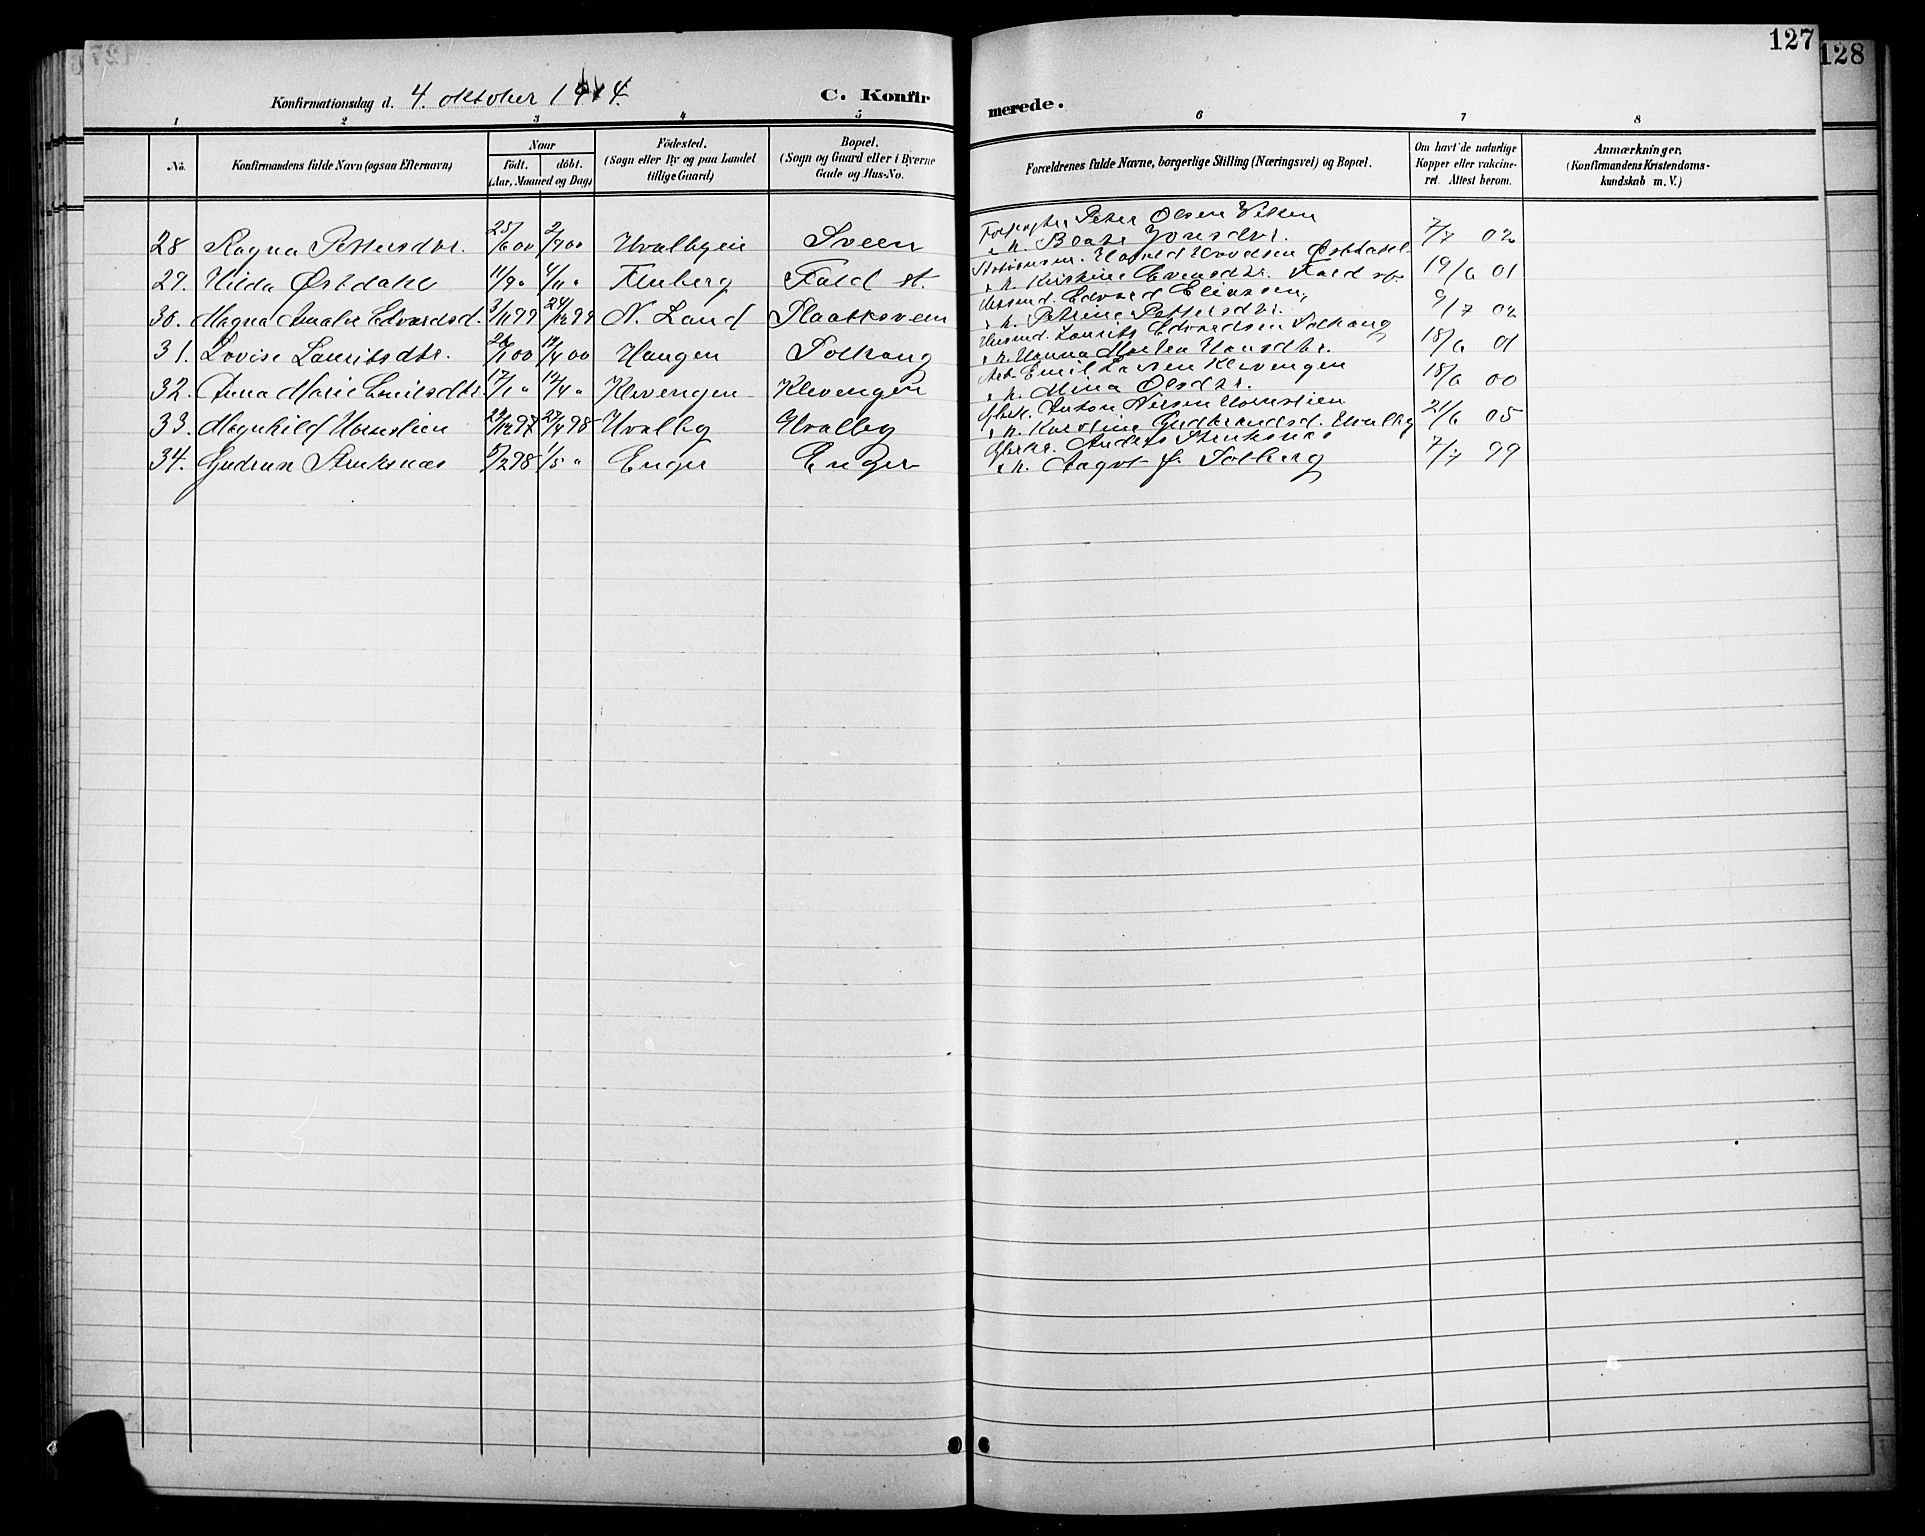 127
128
Konfirmationsdag d. 4. oktober 1914.
C. Konfirmerede.
1 2 3 4 5 6 7 8
No.
Konfirmandens fulde Navn (ogsaa Efternavn)
Naar
födt. döbt.
(Aar, Maaned og Dag)
Födested.
(Sogn eller By og paa Landet
tillige Gaard)
Bopæl.
(Sogn og Gaard eller i Byerne
Gade og Hus-No.
Forældrenes fulde Navne, borgerlige Stilling (Næringsvei) og Bopæl.
Om havt de naturlige
Kopper eller vakcine-
ret. Attest herom.
Anmærkninger.
(Konfirmandens Kristendoms-
kundskab m. V.)
Peter Olsen
28 Ragna Pettersdtr. 25/6 00 2/9 00 Hvalbyeie Sveen
h. Beate Jonsdtr. 7/7 02
Østdahl
29. Hilda Østdahl 11/9 " 4/11 " Fluberg Fald st.
h. Kirstine Evensdtr. Fald st. 19/6 01
Husmd. Edvard Eliassen
30. Magna Amalie Edvardsd. 3/11 99 24/12 99 N. Land Plaatesveen
h. Petrine Pettersdtr. 9/7 02
Husmd. Laurits Edvardsen Solhaug
31. Lovise Lauritsdtr. 00 00 Haugen Solhaug
h. Hanna Hansdtr. 18/6 01
Arb. Emil Larsen Klevengen
32. Anna Marie Emilsdtr. 17/1 " 14/4 " Klevengen Klevengen
h. Mina Olsdtr. 18/6 00
Anton Nilsen Hornslien
33. Magnhild Hornslien 97 98 Hvalby Hvalby
h. Karoline Gudbrandsd. Hvalby 21/6 05
Anders
34. Gudrun 5/2 98 1/5 " Enger Enger
h. Aagot f. Solberg 7/7 99